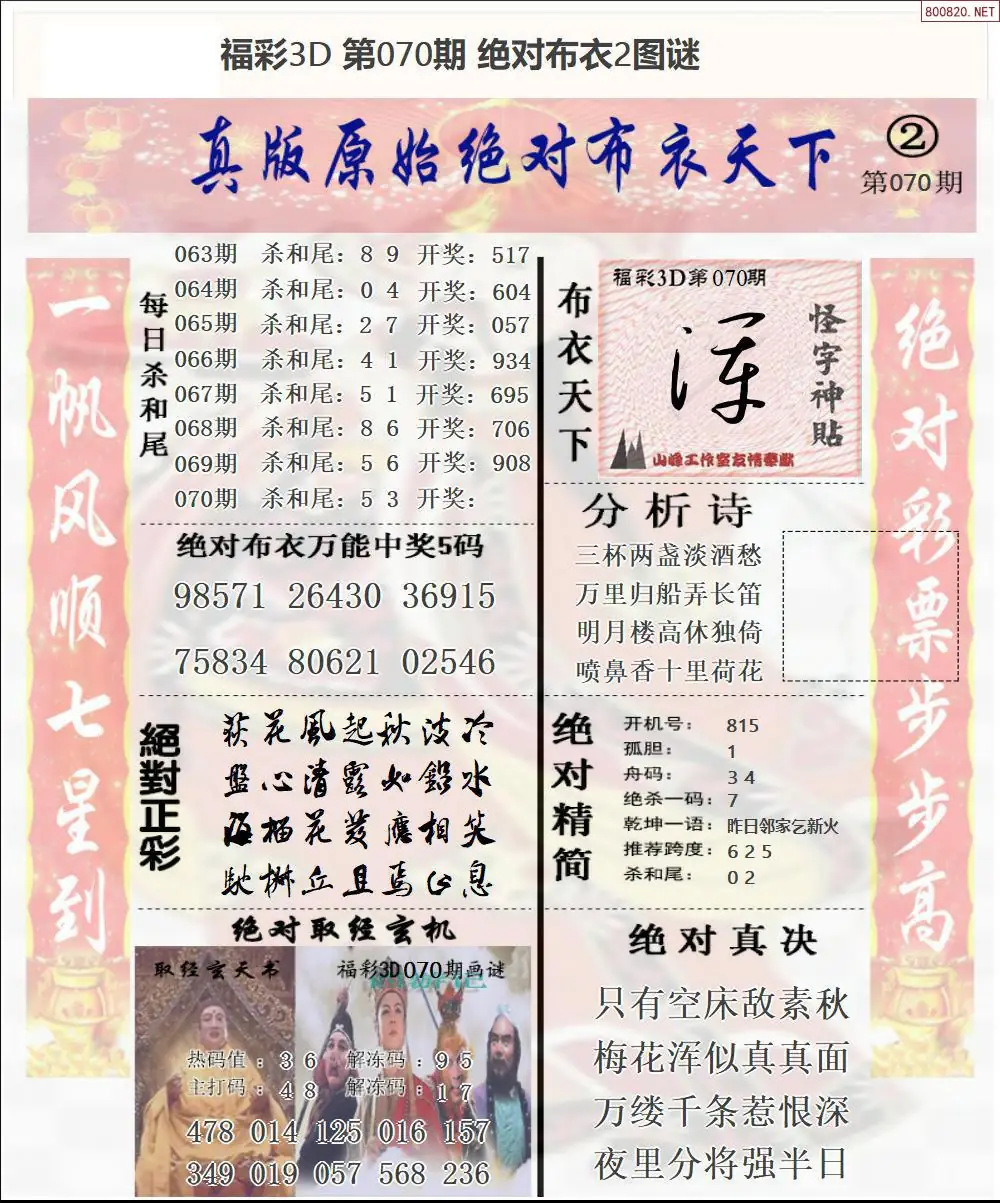 800820.NET
福彩3D 第070期 绝对布衣2图谜
真版原始绝对布衣天下
②
第070期
一帆风顺七星到
每日杀和尾
063期 杀和尾：8 9 开奖：517
064期 杀和尾：0 4 开奖：604
065期 杀和尾：2 7 开奖：057
066期 杀和尾：4 1 开奖：934
067期 杀和尾：5 1 开奖：695
068期 杀和尾：8 6 开奖：706
069期 杀和尾：5 6 开奖：908
070期 杀和尾：5 3 开奖：
绝对布衣万能中奖5码
98571 26430 36915
75834 80621 02546
絕對正彩
荻花風起秋波冷
盤心清露如鉛水
海榴花發應相笑
馳樹丘且焉止息
绝对取经玄机
取经玄天书
福彩3D070期画谜
热码值：3 6 解冻码：9 5
主打码：4 8 解冻码：1 7
478 014 125 016 157
349 019 057 568 236
布衣天下
福彩3D第070期
浑
怪字神貼
山峰工作室友情奉献
分析诗
三杯两盏淡酒愁
万里归船弄长笛
明月楼高休独倚
喷鼻香十里荷花
绝对精简
开机号： 815
孤胆： 1
舟码： 3 4
绝杀一码：7
乾坤一语：昨日邻家乞新火
推荐跨度：6 2 5
杀和尾： 0 2
绝对真决
只有空床敌素秋
梅花浑似真真面
万缕千条惹恨深
夜里分将强半日
绝对彩票步步高